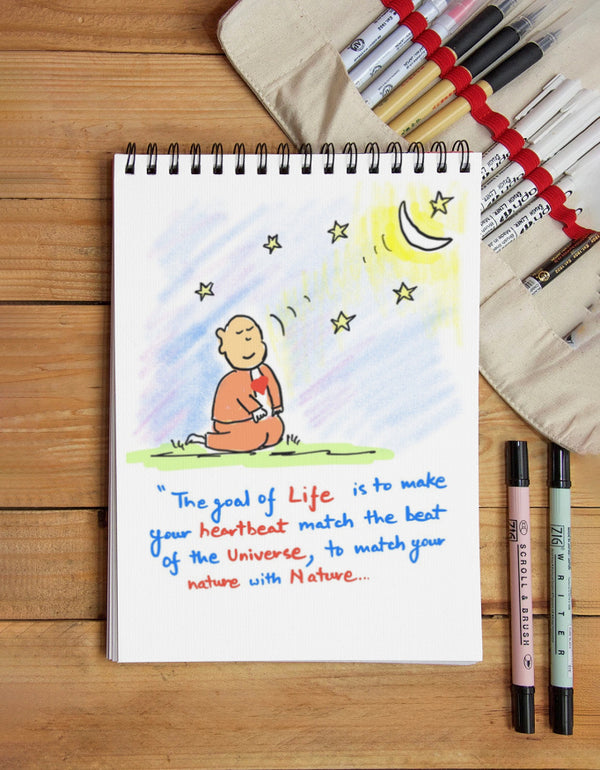 "The goal of Life is to make
your heartbeat match the beat
of the Universe, to match your
nature with Nature...
ZIG SCROLL & BRUSH
ZIG WRITER